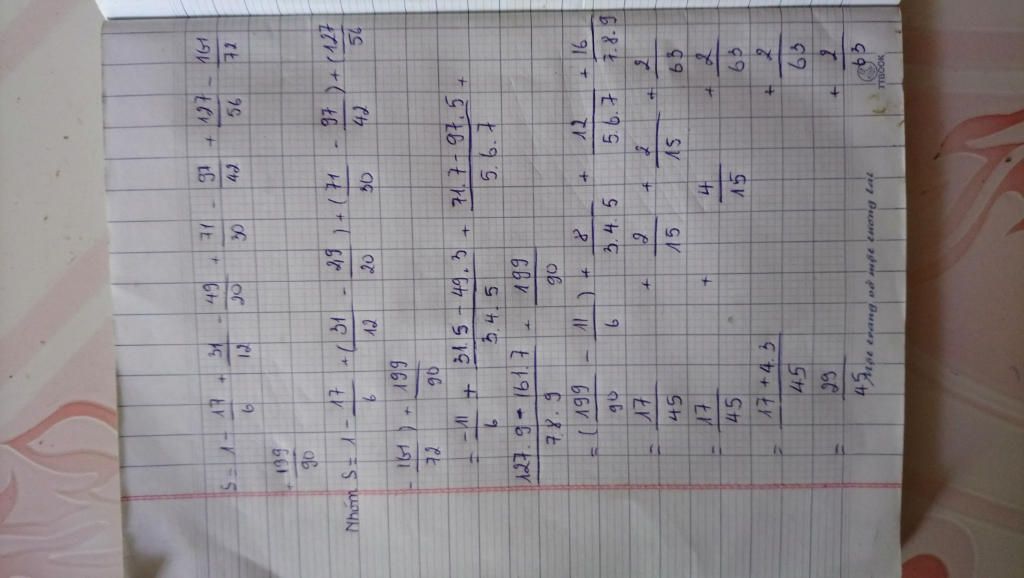 S = 1 - 17/6 + 31/12 - 49/20 + 71/30 - 97/42 + 127/56 - 161/72
+ 199/90
Nhóm S = 1 - 17/6 + (31/12 - 49/20) + (71/30 - 97/42) + (127/56
- 161/72) + 199/90
= -11/6 + (31.5 - 49.3)/3.4.5 + (71.7 - 97.5)/5.6.7 +
(127.9 - 161.7)/7.8.9 + 199/90
= (199/90 - 11/6) + 8/3.4.5 + 12/5.6.7 + 16/7.8.9
= 17/45 + 2/15 + 2/15 + 2/63
= 17/45 + 4/15 + 2/63
= (17 + 4.3)/45 + 2/63
= 29/45 + 2/63
Mỗi trang vở một trang đời
ITBOOK